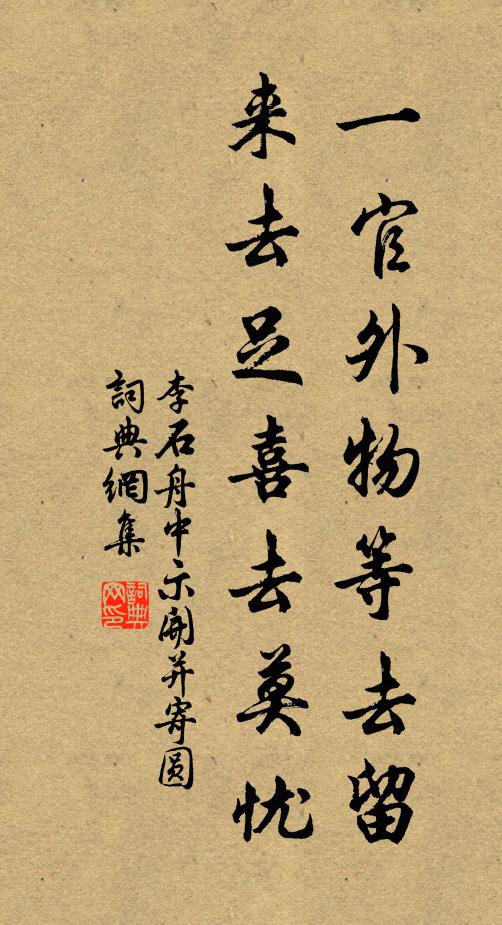 一官外物等去留
来去足喜去莫忧
李石舟中示開并寄圆
詞典網集
詞典网印